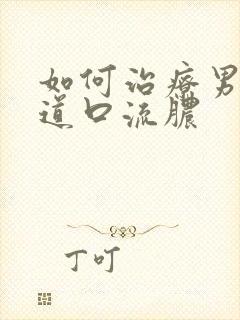 如何治疗男
道口流脓
丁叮